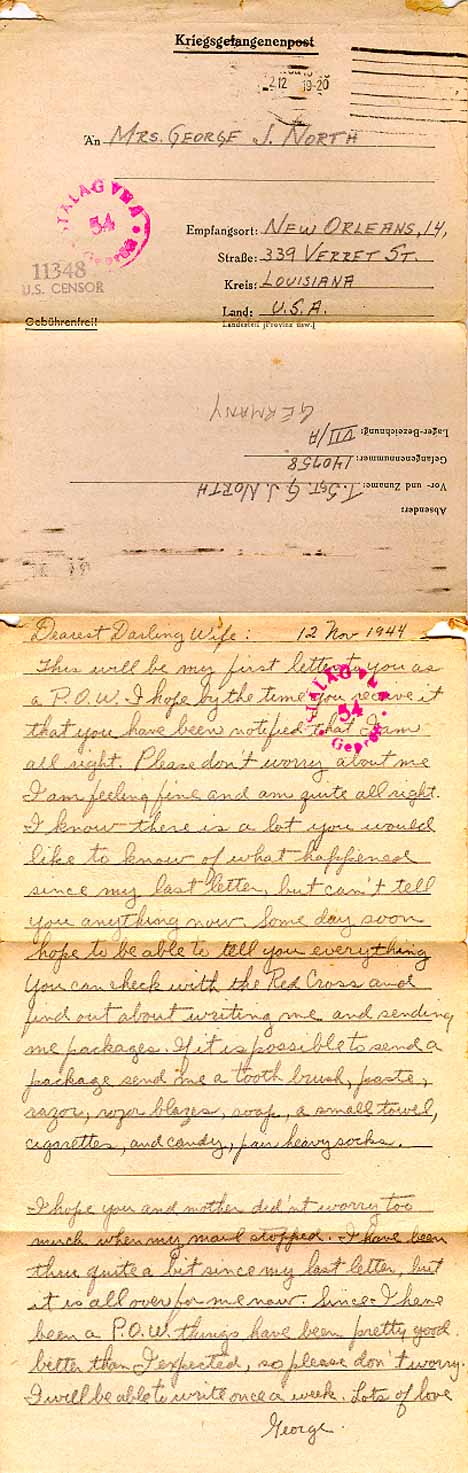 Kriegsgefangenenpost
212 19-20
An MRS. GEORGE J. NORTH
STALAG VIIA
54
Geprüft
Empfangsort: NEW ORLEANS, 14,
Straße: 339 VERRET ST.
Kreis: LOUISIANA
Land: U.S.A.
Landesteil (Provinz usw.)
11348
U.S. CENSOR
Gebührenfrei!
GERMANY
Lager-Bezeichnung: VII/A
Gefangenennummer: 140458
Vor- und Zuname: T.SGT. G J. NORTH
Absender:
Dearest Darling Wife: 12 Nov 1944
This will be my first letter to you as
a P.O.W. I hope by the time you receive it
that you have been notified that I am
all right. Please don't worry about me
I am feeling fine and am quite all right.
I know there is a lot you would
like to know of what happened
since my last letter, but can't tell
you anything now. Some day soon
hope to be able to tell you everything
You can check with the Red Cross and
find out about writing me and sending
me packages. If it is possible to send a
package send me a tooth brush, paste,
razor, razor blazes, soap, a small towel,
cigarettes, and candy, pair heavy socks.
I hope you and mother did'nt worry too
much when my mail stopped. I have been
thru quite a bit since my last letter, but
it is all over for me now. Since I have
been a P.O.W. things have been pretty good.
better than I expected, so please don't worry.
I will be able to write once a week. Lots of love
George.
STALAG VIIA
54
Geprüft